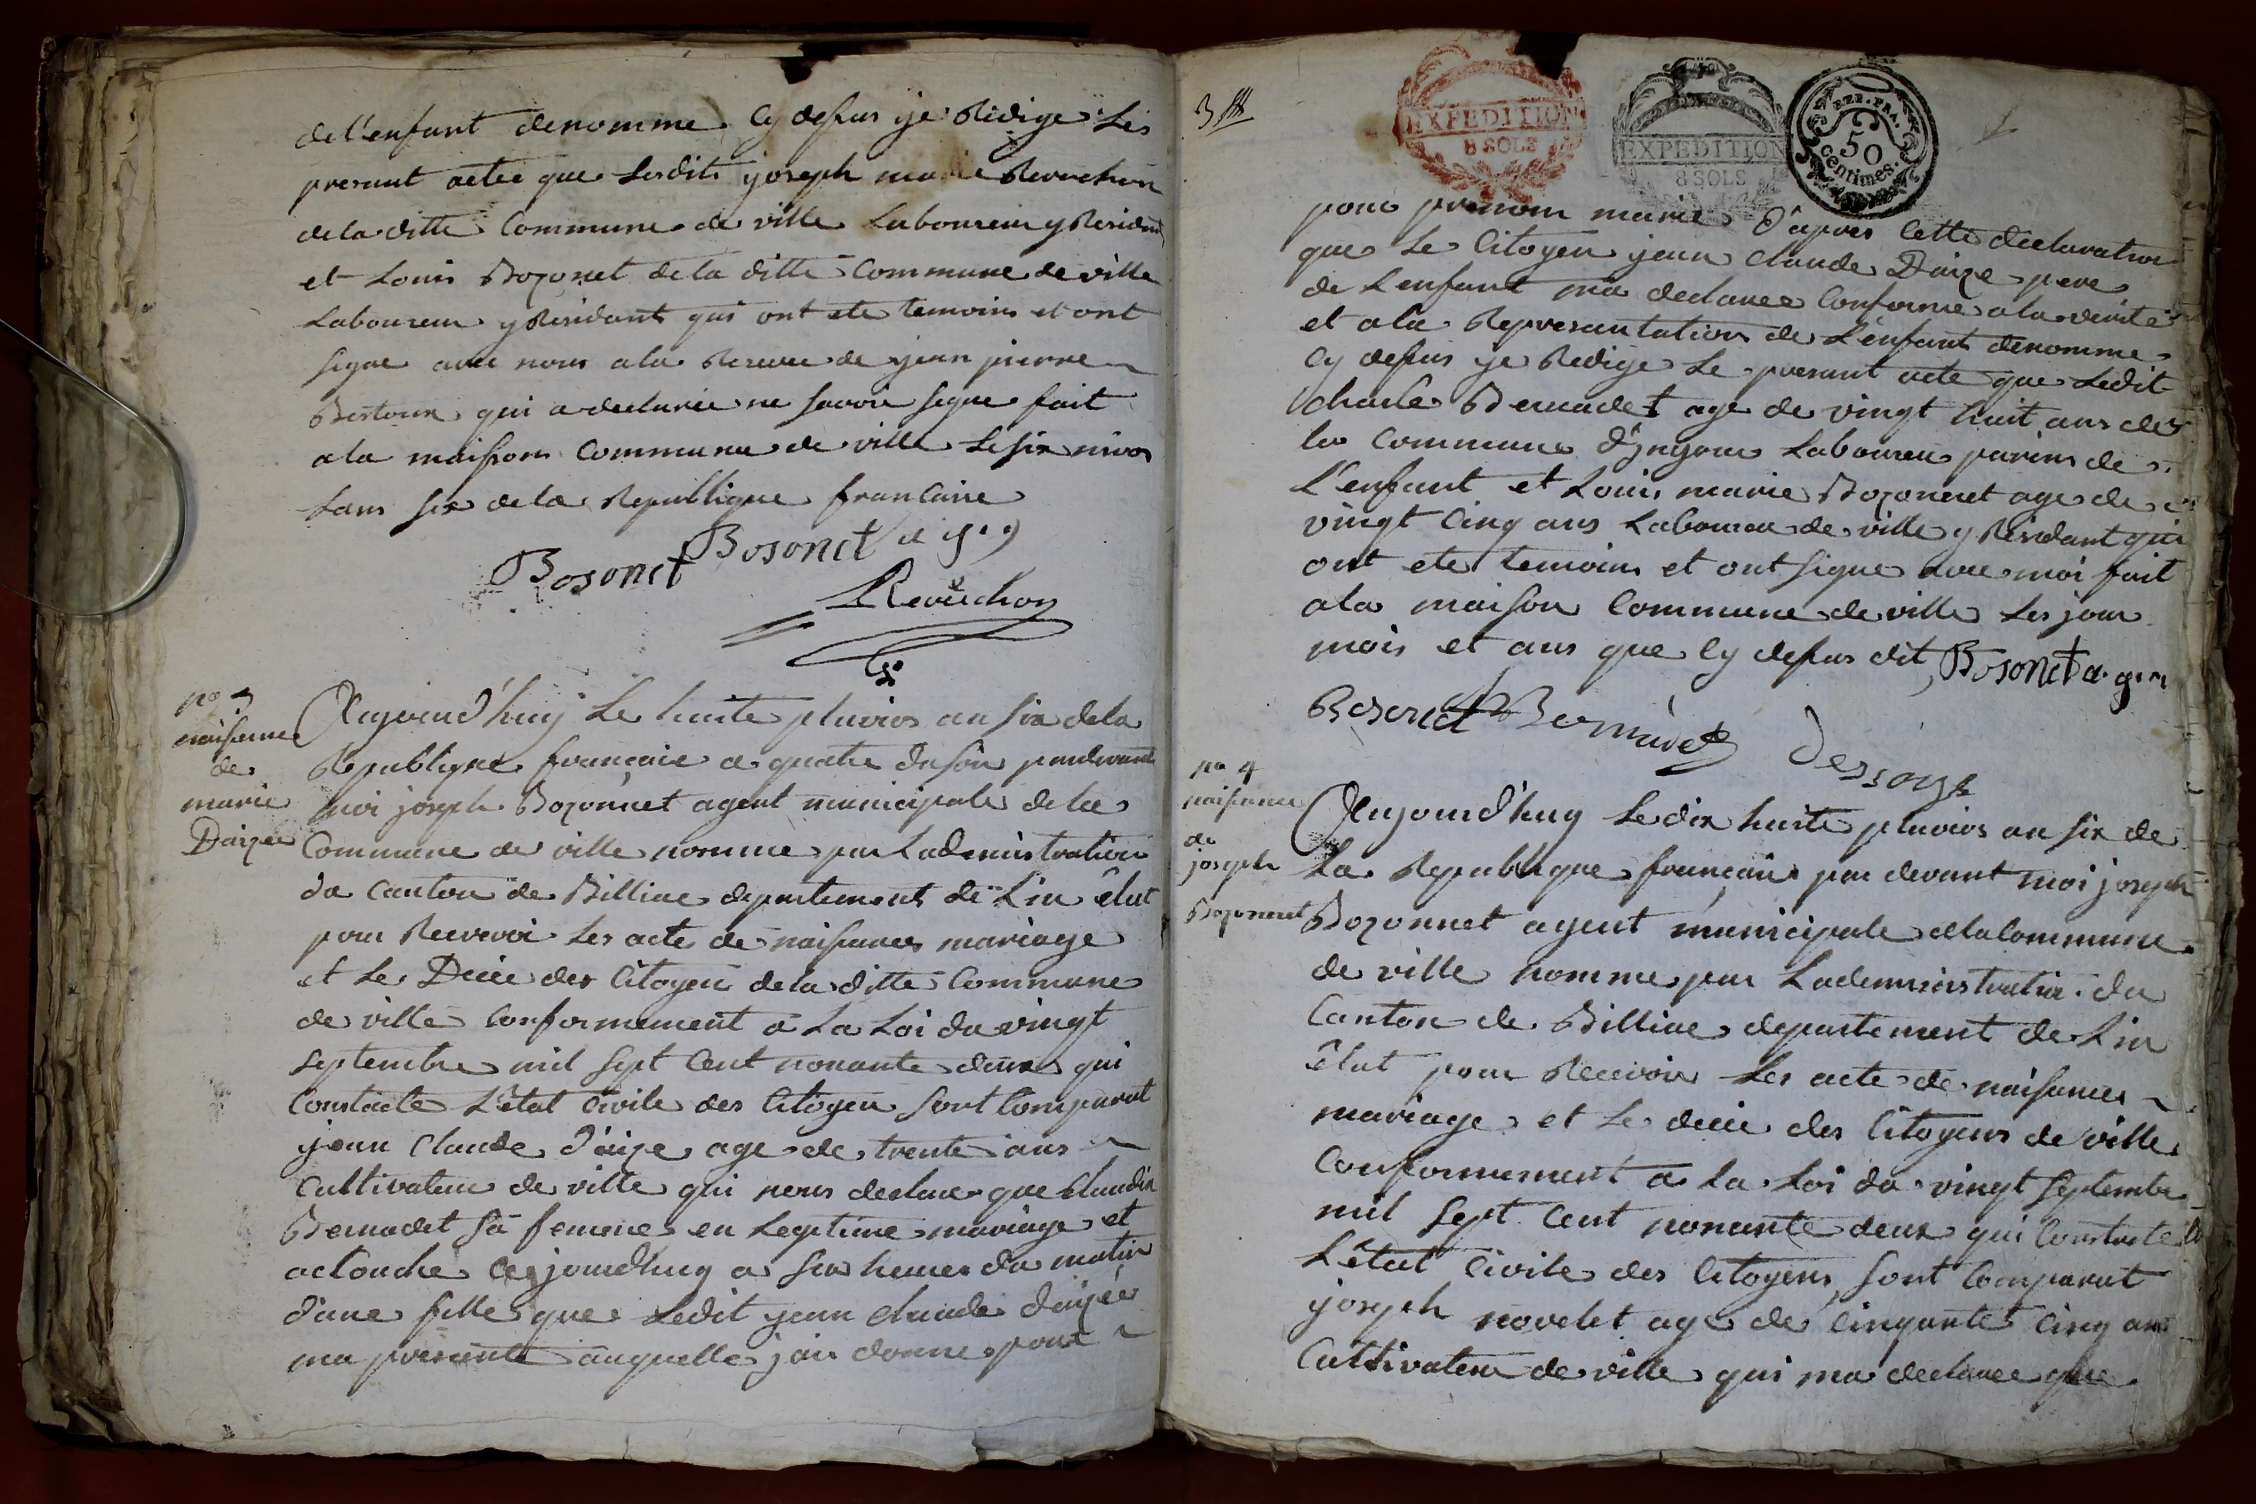 de l'enfant denomme Cy desus je Redige Les
presant actee que Lesdits joseph marie Revuchon
de la ditte Commune de ville Laboureur y Resident
et Louis Bozonet de la ditte Commune de ville
Laboureur y Residants qui ont ete temoins et ont
signe avec nous a la Reserve de jean pierre
qui a declaree ne savoir signe fait
a la maison Commune de ville Le six nivos
Lans six de la Republique francaise
Bosonet a g.
Bosonet
Revuchon
no 3
naisance
de
marie
Daizee
Aujourd'huy Le huite pluvios an six de la
Republique françaice a quatre du soir pardevant
moi joseph Bozonnet agent municipale de la
Commune de ville nomme par Ladministration
du Canton de Billiac departements de Lin êlut
pour Recevoir Les acte de naisances mariage
et Le Decee des Citoyen de la ditte Commune
de ville Conformement a La Loi du vingt
septembre mil sept Cent nonante deux qui
Constacte L'êtat Civile des Citoyen sont Comparut
jean Claude d'aize age de trente ans
Cultivateur de ville qui nous declare que Claudin
Bernadet sa femme en Legitime mariage et
aclouche aujourdhuy a six heures du matin
d'une fille que Ledit jean claude daizée
ma presente auquelle jai donne pour
3
EXPEDITION
8 SOLS
EXPEDITION
8 SOLS
50
centimes
pour prenom marie d'apres Cette declaration
que Le Citoyen jean Claude Daize pere
de Lenfant ma declaree Conforme a la verite
et a la Represantation de L'enfant denomme
Cy desus je Redige Le presant acte que Ledit
Charle Bernadet age de vingt huit ans de
la Commune Laboureu parins de
L'enfant et Louis marie Bozonnet age de
vingt Cinq ans Laboureur de ville y Residant qui
ont ete temoins et ont signe avec moi fait
a la maison Commune de ville Les jour
mois et ans que Cy desus dit Bosonet a. g.
Bosonet Bernadet
no 4
naisance
de
joseph
Bozonnet
Aujourd'huy Le dix huite pluvios an six de
La Republique française par devant moi joseph
Bozonnet agent municipale de la Commune
de ville nomme par Ladministration du
Canton de Billiac departement de Lin
êlut pour Recevoir Les acte de naisances
mariage et Le decee des Citoyens de ville
Conformement a La Loi du vingt septembre
mil sept Cent nonante deux qui Constacte
L'êtat Civile des Citoyens sont Comparut
joseph novelet age de Cinquante Cinq ans
Cultivateur de ville qui ma declaree que